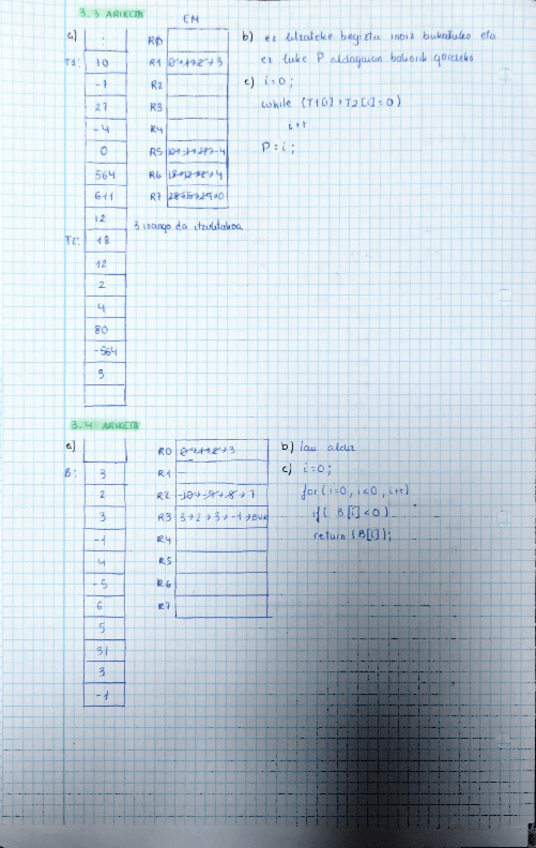 3.3 ARIKETA
EM
a)
:
T1:
10
-1
27
-4
0
564
611
12
T2:
18
12
2
4
80
-564
3
R0
R1 0→1→2→3
R2
R3
R4
R5
R6
R7
3 izango da itzulitakoa
b) ez litzateke begizta inoiz bukatuko eta
ez luke P aldagaian baliorik gordeko
c) i=0;
while (T1[i]+T2[i]=0)
i++
P=i;
3.4 ARIKETA
a)
B:
3
2
3
-1
4
-5
6
5
31
3
-1
R0 0→1→2→3
R1
R2 -10→-9→-8→-7
R3 3→2→3→-1→
R4
R5
R6
R7
b) lau aldiz
c) i=0;
for(i=0, i<0, i++)
if( B[i]<0)
return (B[i]);